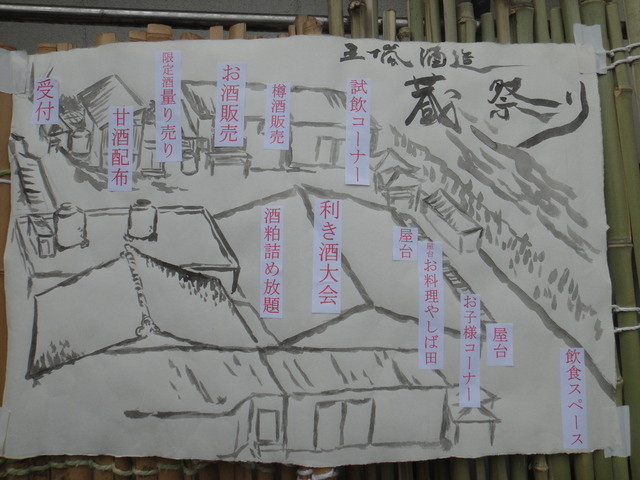 酒造
蔵祭り
受付
甘酒配布
限定酒量り売り
お酒販売
樽酒販売
試飲コーナー
酒粕詰め放題
利き酒大会
屋台
屋台 お料理やしば田
お子様コーナー
屋台
飲食スペース